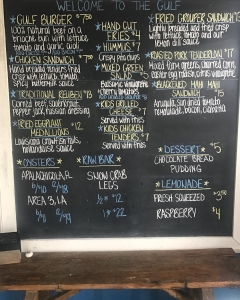 WELCOME TO THE GULF
*GULF BURGER* $7.50
100% natural beef on a
brioche bun with lettuce,
tomato and garlic aioli
*CHICKEN SANDWICH* $7
Hand breaded tenders fried
crisp with lettuce, tomato,
spicy buttermilk sauce
*TRADITIONAL REUBEN* $10
Corned beef, sauerkraut,
pepper jack, russian dressing
*FRIED EGGPLANT
MEDALLIONS $12
Louisiana crawfish tails,
hollandaise sauce
*OYSTERS*
APALACHICOLA
AREA 3.1A
*HAND CUT
FRIES $4
*HUMMUS $7
Crispy peachups
*MIXED GREEN
SALAD $5
Balsamic vinaigrette
*KIDS GRILLED
CHEESE $7
Served with fries
*KIDS CHICKEN
TENDERS $7
Served with fries
*RAW BAR*
SNOW CRAB
LEGS
1/2# $12
1# $22
*FRIED GROUPER SANDWICH
Lightly breaded and fried crisp
with lettuce, tomato and our
lemon dill sauce
*ROASTED PORK TENDERLOIN
*BLACKENED MAHI MAHI
SANDWICH
Arugula, sun dried tomato,
*DESSERT* $5
CHOCOLATE BREAD
PUDDING
*LEMONADE*
FRESH SQUEEZED $3.50
RASPBERRY $4